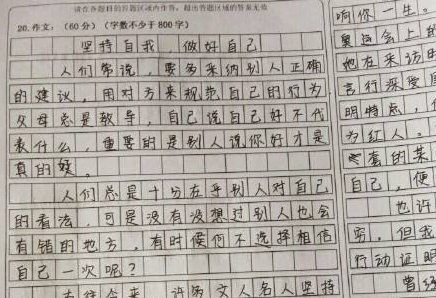 请在各题目的答题区域内作答，超出答题区域的答案无效
20.作文：（60分）（字数不少于800字）
坚持自我，做好自己
人们常说，要多采纳别人正确
的建议，用对方来规范自己的行为
父母总是教导，自己说自己好不代
表什么，重要的是别人说你好才是
真的好。
人们总是十分在乎别人对自己
的看法，可是没有没想过别人也会
有错的地方，有时候何不选择相信
自己一次呢？
古往今来，许多文人名人坚持
响你一生。
奥运会上的
她在采访时
言行深受
明特点，
为红人。
套的某
自己，便
也许
穷，但我
行动证明
曾经